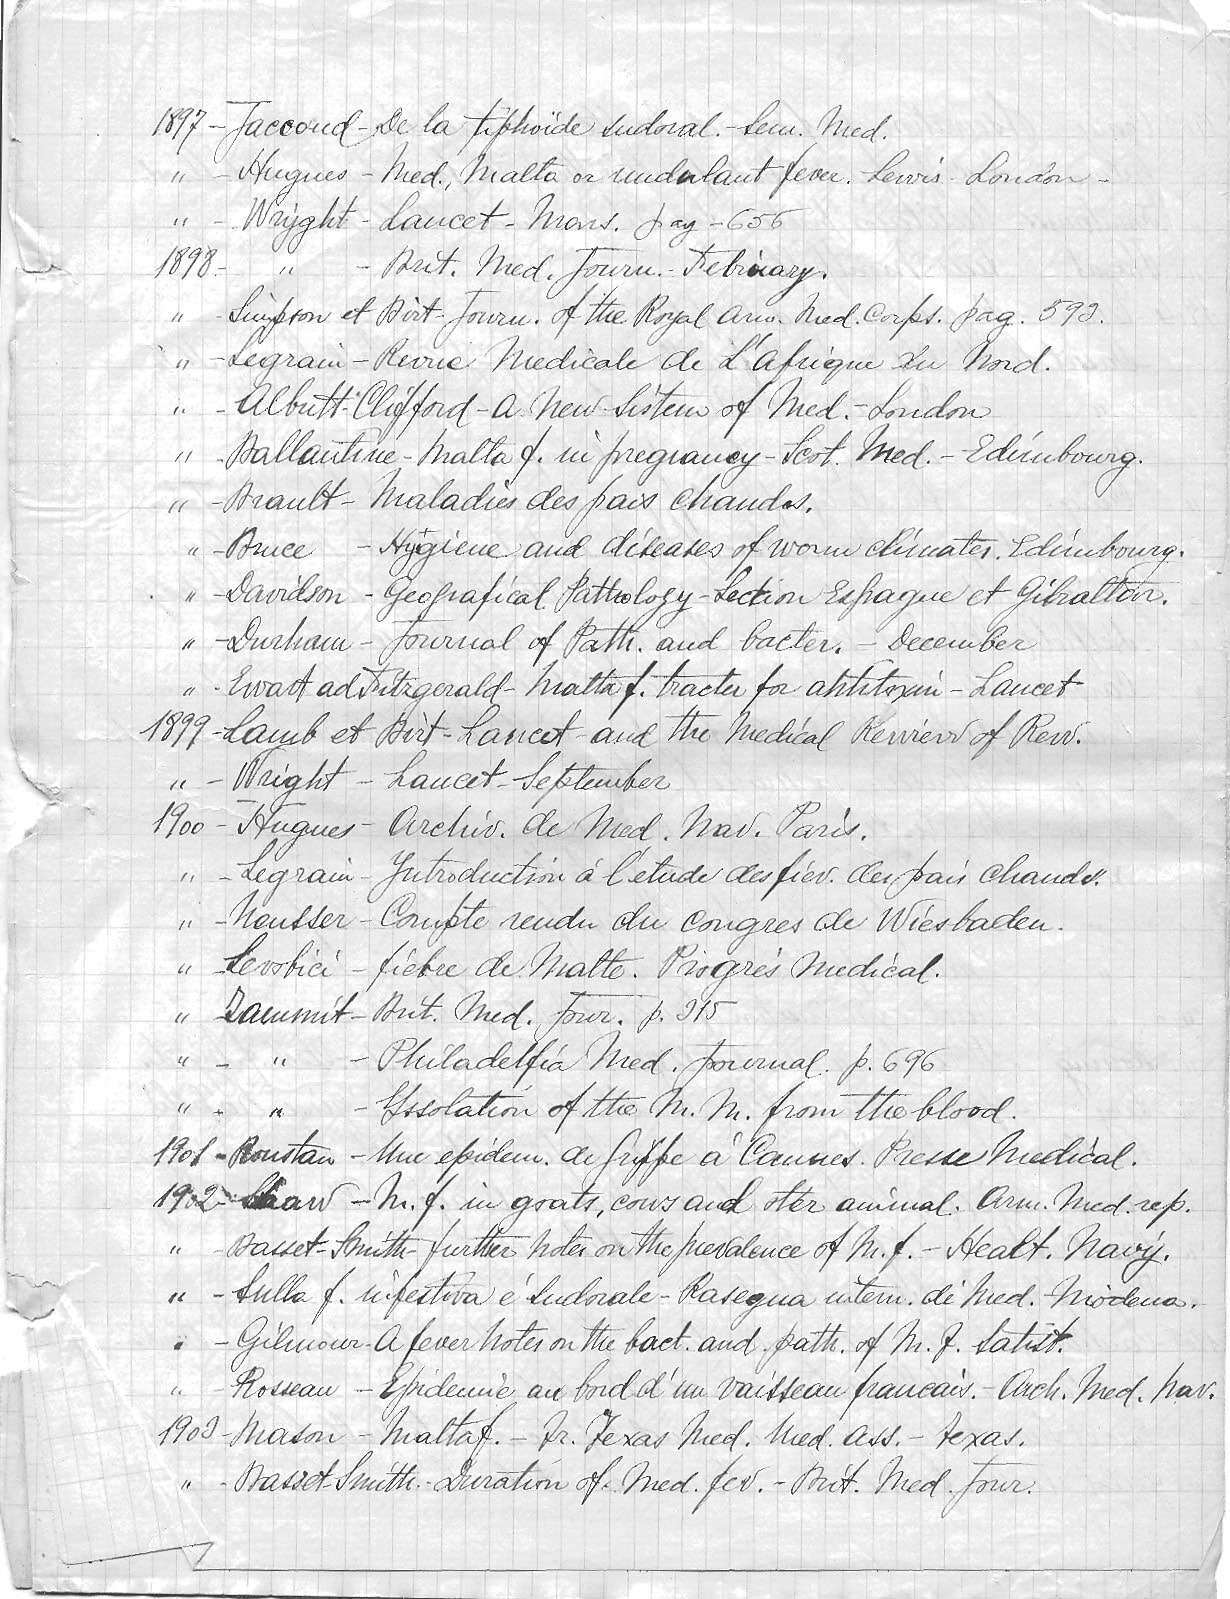 1897 - Jaccoud - De la tiphoide sudoral. - Sem. Med.
" - Hugues - Med., Malta or undulant fever. Lewis - London -
" - Wryght - Lancet - Mars. pag - 656
1898 - " - Brit. Med. Journ. - February.
" - Simpson et Birt - Journ. of the Royal Arm. Med. Corps. pag. 593.
" - Legrain - Revue Medicale de L'Afrique du Nord.
" - Albutt-Clifford - A New Sistem of Med. - London
" - Ballantine - Malta f. in pregnancy - Scot. Med. - Edimbourg.
" - Brault - Maladies des pais chandes.
" - Bruce - Hygiene and diseases of worm climates. Edimbourg.
" - Davidson - Geografical Pathology - Section Espague et Gibraltar.
" - Durham - Journal of Path. and bacter. - December
" - Ewart ad Fitzgerald - Malta f. tracter for antitoxin - Lancet
1899 - Lamb et Birt - Lancet - and the Medical Rewiew of Rew.
" - Wright - Lancet - September
1900 - Hugues - Archiv. de Med. Nav. Paris.
" - Legrain - Introduction á l'etude des fiev. des pais chandes.
" - Neusser - Compte rendu du congres de Wiesbaden.
" - Levobici - fiebre de Malte. Progrés Medical.
" - Zammit - Brit. Med. Jour. p. 315
" - " - Philadelfia Med. Journal. p. 696
" - " - Yssolation of the M. M. from the blood.
1901 - Roustan - Une epidem. de grippe á Cannes. Presse Medical.
1902 - Shaw - M. f. in goats, cows and oter animal. Arm. Med. rep.
" - Basset-Smith - further Notes on the prevalence of M. f. - Healt. Navy.
" - Sulla f. infestiva é Sudorale - Rasegna intern. di Med. - Modena.
" - Gilmour - A fever Notes on the bact. and path. of M. F. Satist.
" - Rosseau - Epidemie au bord d'un vaisseau francais. - Arch. Med. Nav.
1903 - Mason - Malta f. - Tr. Texas Med. Med. Ass. - Texas.
" - Basset-Smith. - Duration of Med. fev. - Brit. Med. Jour.